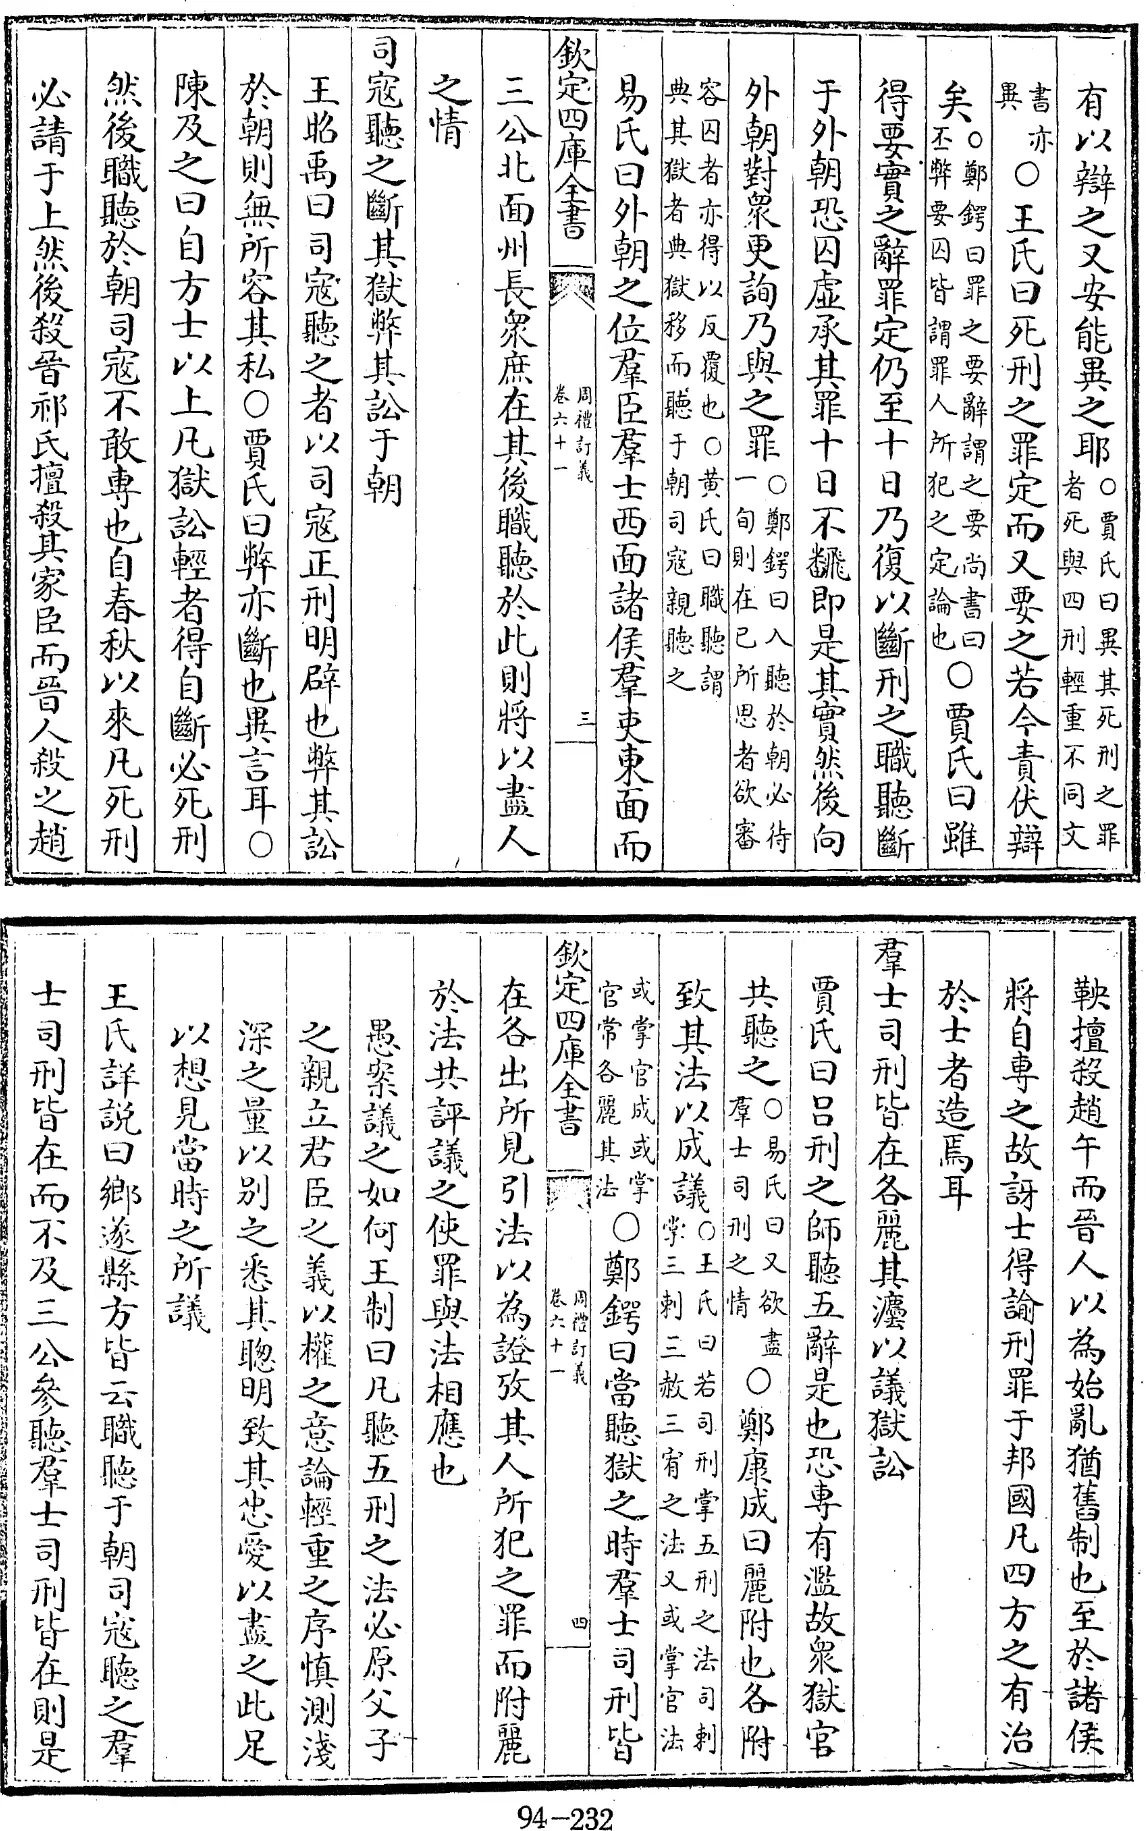 有以辯之又安能異之耶○賈氏曰異其死刑之罪者死與四刑輕重不同文
書亦異○王氏曰死刑之罪定而又要之若今責伏辯
矣○鄭鍔曰罪之要辭謂之要尚書曰丕弊要囚皆謂罪人所犯之定論也○賈氏曰雖
得要實之辭罪定仍至十日乃復以斷刑之職聽斷
于外朝恐囚虛承其罪十日不飜即是其實然後向
外朝對衆更詢乃與之罪○鄭鍔曰入聽於朝必待一旬則在已所思者欲審
容囚者亦得以反覆也○黄氏曰職聽謂典其獄者典獄移而聽于朝司寇親聽之
易氏曰外朝之位羣臣羣士西面諸侯羣吏東面而
欽定四庫全書 周禮訂義卷六十一 三
三公北面州長衆庶在其後職聽於此則將以盡人
之情
司寇聽之斷其獄弊其訟于朝
王昭禹曰司寇聽之者以司寇正刑明辟也弊其訟
於朝則無所容其私○賈氏曰弊亦斷也異言耳○
陳及之曰自方士以上凡獄訟輕者得自斷必死刑
然後職聽於朝司寇不敢專也自春秋以來凡死刑
必請于上然後殺晉祁氏擅殺其家臣而晉人殺之趙
鞅擅殺趙午而晉人以為始亂猶舊制也至於諸侯
將自專之故訝士得諭刑罪于邦國凡四方之有治
於士者造焉耳
羣士司刑皆在各麗其灋以議獄訟
賈氏曰吕刑之師聽五辭是也恐專有濫故衆獄官
共聽之○易氏曰又欲盡羣士司刑之情○鄭康成曰麗附也各附
致其法以成議○王氏曰若司刑掌五刑之法司刺掌三刺三赦三宥之法又或掌官法
或掌官成或掌官常各麗其法○鄭鍔曰當聽獄之時羣士司刑皆
欽定四庫全書 周禮訂義卷六十一 四
在各出所見引法以為證攷其人所犯之罪而附麗
於法共評議之使罪與法相應也
愚案議之如何王制曰凡聽五刑之法必原父子
之親立君臣之義以權之意論輕重之序慎測淺
深之量以别之悉其聰明致其忠愛以盡之此足
以想見當時之所議
王氏詳說曰鄉遂縣方皆云職聽于朝司寇聽之羣
士司刑皆在而不及三公參聽羣士司刑皆在則是
94-232